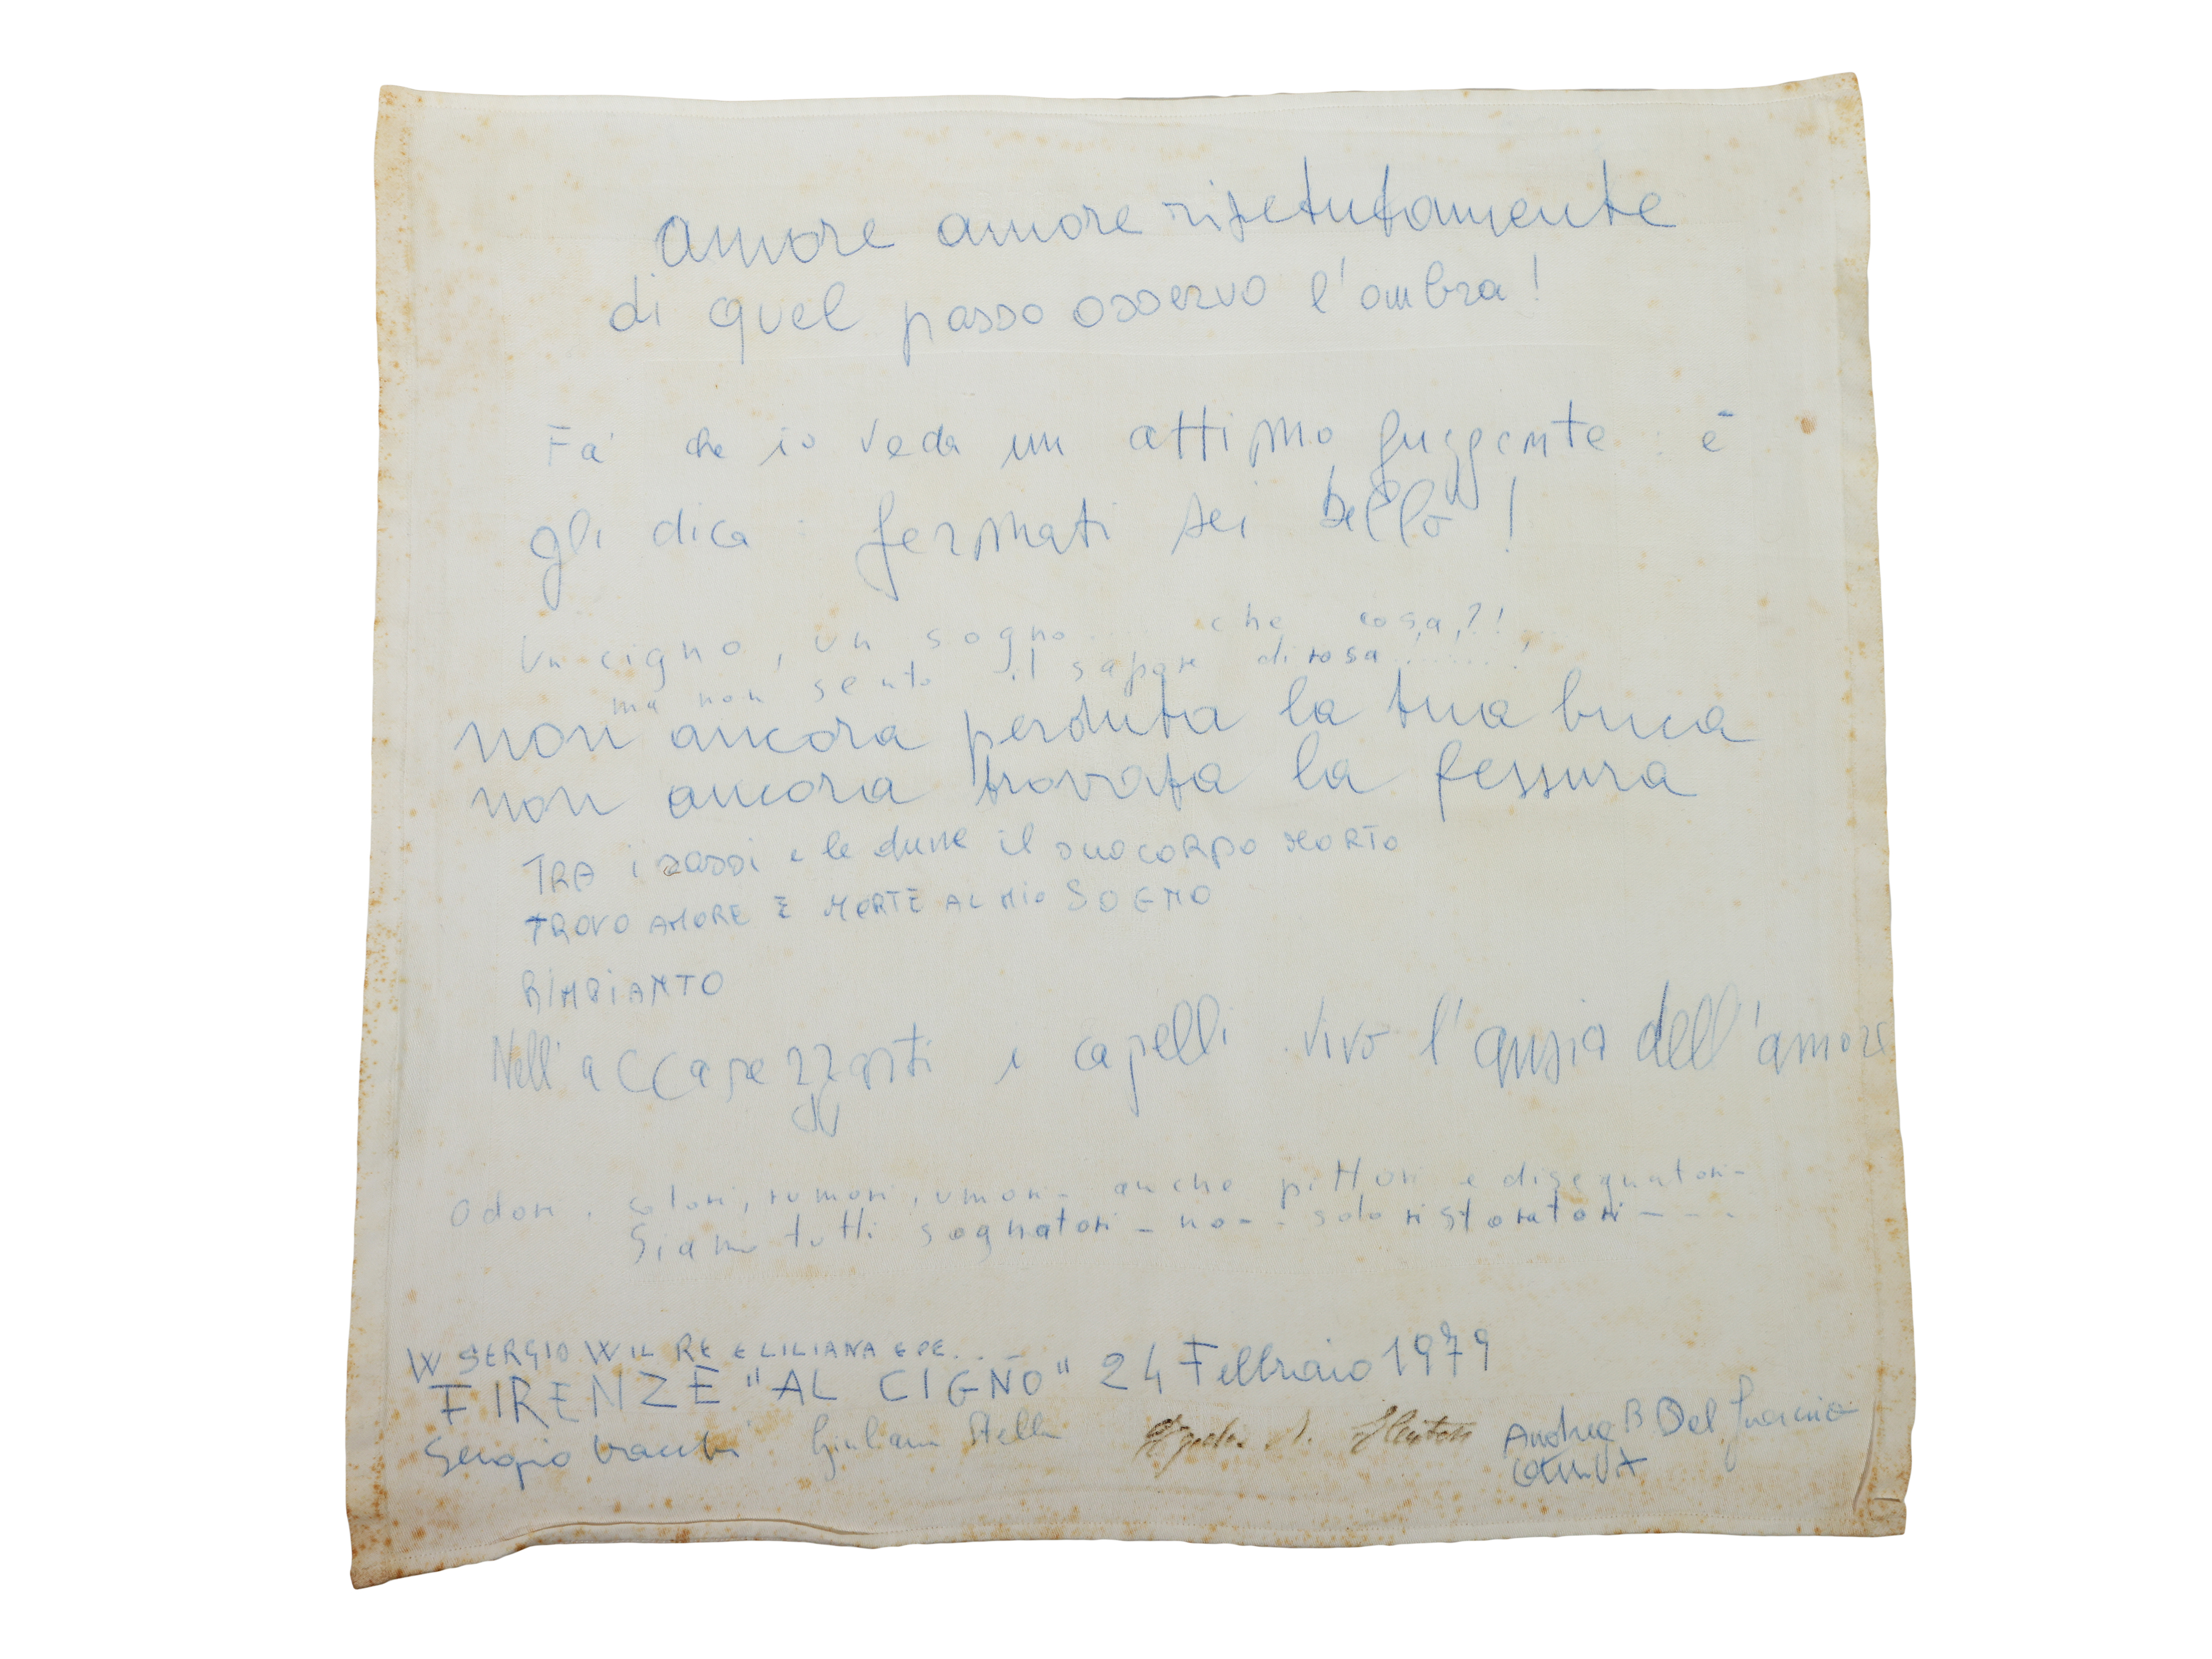 amore amore ripetutamente
di quel passo osservo l'ombra!
Fa' che io veda un attimo fuggente e
gli dica: fermati sei bello!
Un cigno, un sogno.... che cosa,?!
ma non sento il sapore di rosa!......!
non ancora perduta la tua buca
non ancora trovata la fessura
TRA i sassi e le dune il suo CORPO MORTO
TROVO AMORE E MORTE AL MIO SOGNO
RIMPIANTO
Nell'accarezzarti i capelli vivo l'ansia dell'amore
Odori, colori, rumori, umori - anche pittori e disegnatori -
Siamo tutti sognatori - no - solo ristoratori - - - -
W SERGIO W IL RE E LILIANA E PE...
FIRENZE "AL CIGNO" 24 Febbraio 1979
Sergio Vacchi Giuliana Stella Andrea B Del Guercio